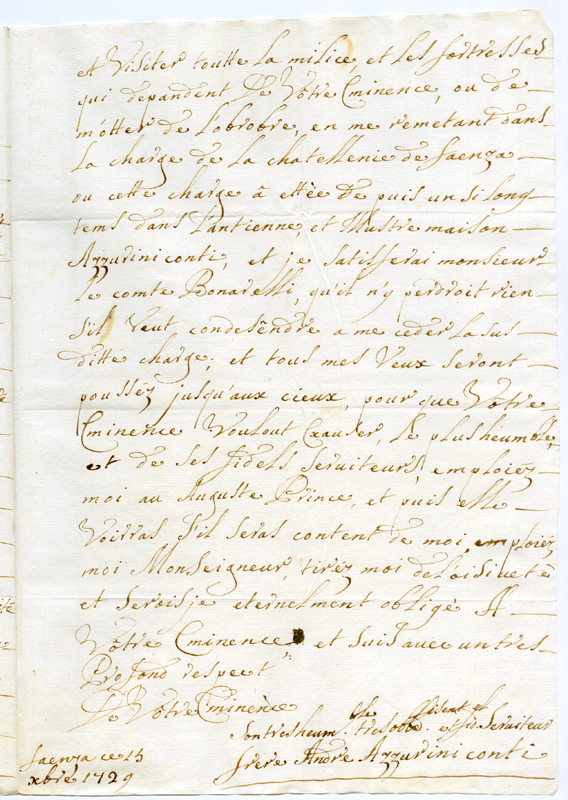 et Visiter toutte La milice et Les fortresses
qui depandent De Votre Eminence, ou de
m'otter de L'obrobre, en me remetant dans
La charge de La chatellenie de faenza
ou cette charge à ettée De puis un si Long
tems dans L'antienne, et Illustre maison
Azzurini conti, et je satisferai monsieur
Le comte Bonarelli, qu'il n'y perdroit rien
s'il Veut condesendre a me ceder La sus
ditte charge; et tous mes Veux seront
poussez jusqu'aux cieux, pour que Votre
Eminence Voulout Exauser, Le plus heumble,
et de ses fidels serviteurs, emploiez
moi au Auguste Prince, et puis elle
Voirras, s'il seras content de moi, emploiez
moi Monseigneur, tirez moi de L'oisiveté
et serois je eternelment obligé A
Votre Eminence, et suis avec un tres
Profond respect
De Votre Eminence
Son tres heum. tres obb. et Serviteur
faenza ce 15
xbre 1729
frere André Azzurini conti